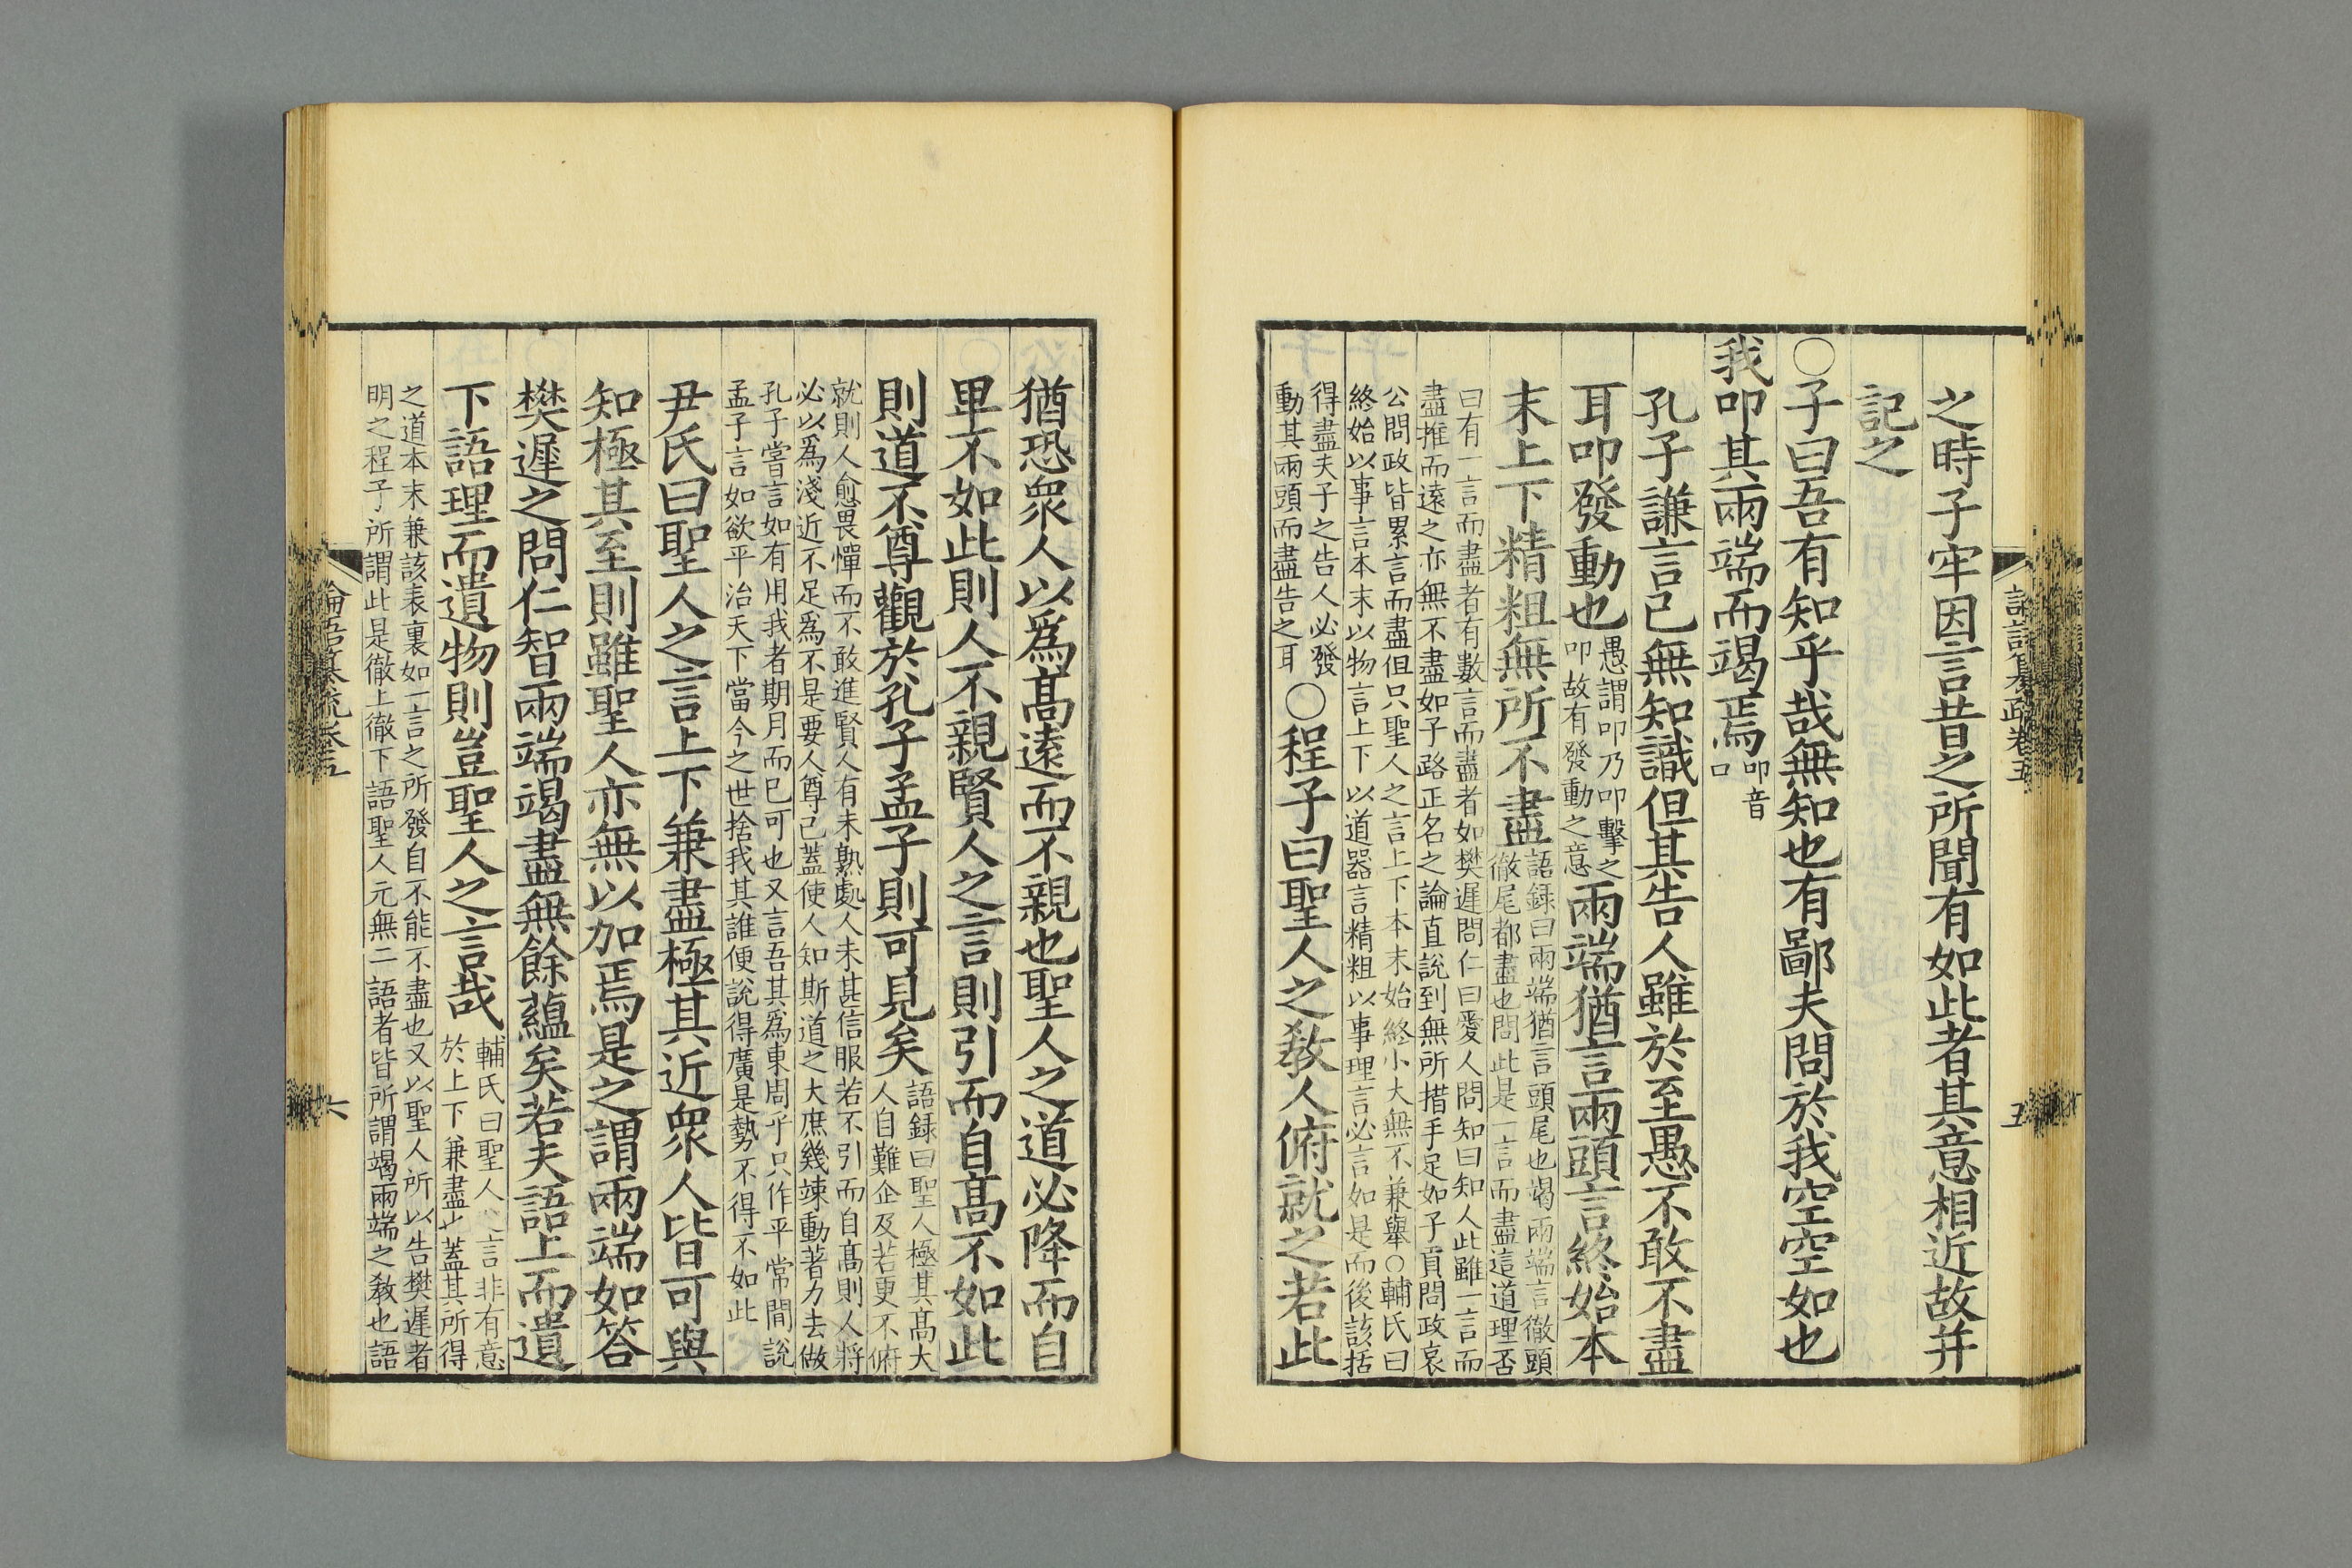 之時子牢因言昔之所聞有如此者其意相近故并
記之
○子曰吾有知乎哉無知也有鄙夫問於我空空如也
我叩其兩端而竭焉叩音口
孔子謙言己無知識但其告人雖於至愚不敢不盡
耳叩發動也愚謂叩乃叩擊之叩故有發動之意兩端猶言兩頭言終始本
末上下精粗無所不盡語録曰兩端猶言頭尾也竭兩端言徹頭徹尾都盡也問此是一言而盡這道理否
曰有一言而盡者有數言而盡者如樊遲問仁曰愛人問知曰知人此雖一言而
盡推而遠之亦無不盡如子路正名之論直說到無所措手足如子貢問政哀
公問政皆累言而盡但只聖人之言上下本末始終小大無不兼舉○輔氏曰
終始以事言本末以物言上下以道器言精粗以事理言必言如是而後該括
得盡夫子之告人必發
動其兩頭而盡告之耳○程子曰聖人之敎人俯就之若此
猶恐衆人以爲髙遠而不親也聖人之道必降而自
卑不如此則人不親賢人之言則引而自髙不如此
則道不尊觀於孔子孟子則可見矣語録曰聖人極其髙大人自難企及若更不俯
就則人愈畏憚而不敢進賢人有未熟處人未甚信服若不引而自髙則人將
必以爲淺近不足爲不是要人尊己蓋使人知斯道之大庶幾竦動著力去做
孔子嘗言如有用我者期月而已可也又言吾其爲東周乎只作平常閒說
孟子言如欲平治天下當今之世捨我其誰便說得廣是勢不得不如此
尹氏曰聖人之言上下兼盡極其近衆人皆可與
知極其至則雖聖人亦無以加焉是之謂兩端如答
樊遲之問仁智兩端竭盡無餘蘊矣若夫語上而遺
下語理而遺物則豈聖人之言哉輔氏曰聖人之言非有意於上下兼盡也蓋其所得
之道本末兼該表裏如一言之所發自不能不盡也又以聖人所以告樊遲者
明之程子所謂此是徹上徹下語聖人元無二語者皆所謂竭兩端之敎也語
五
六